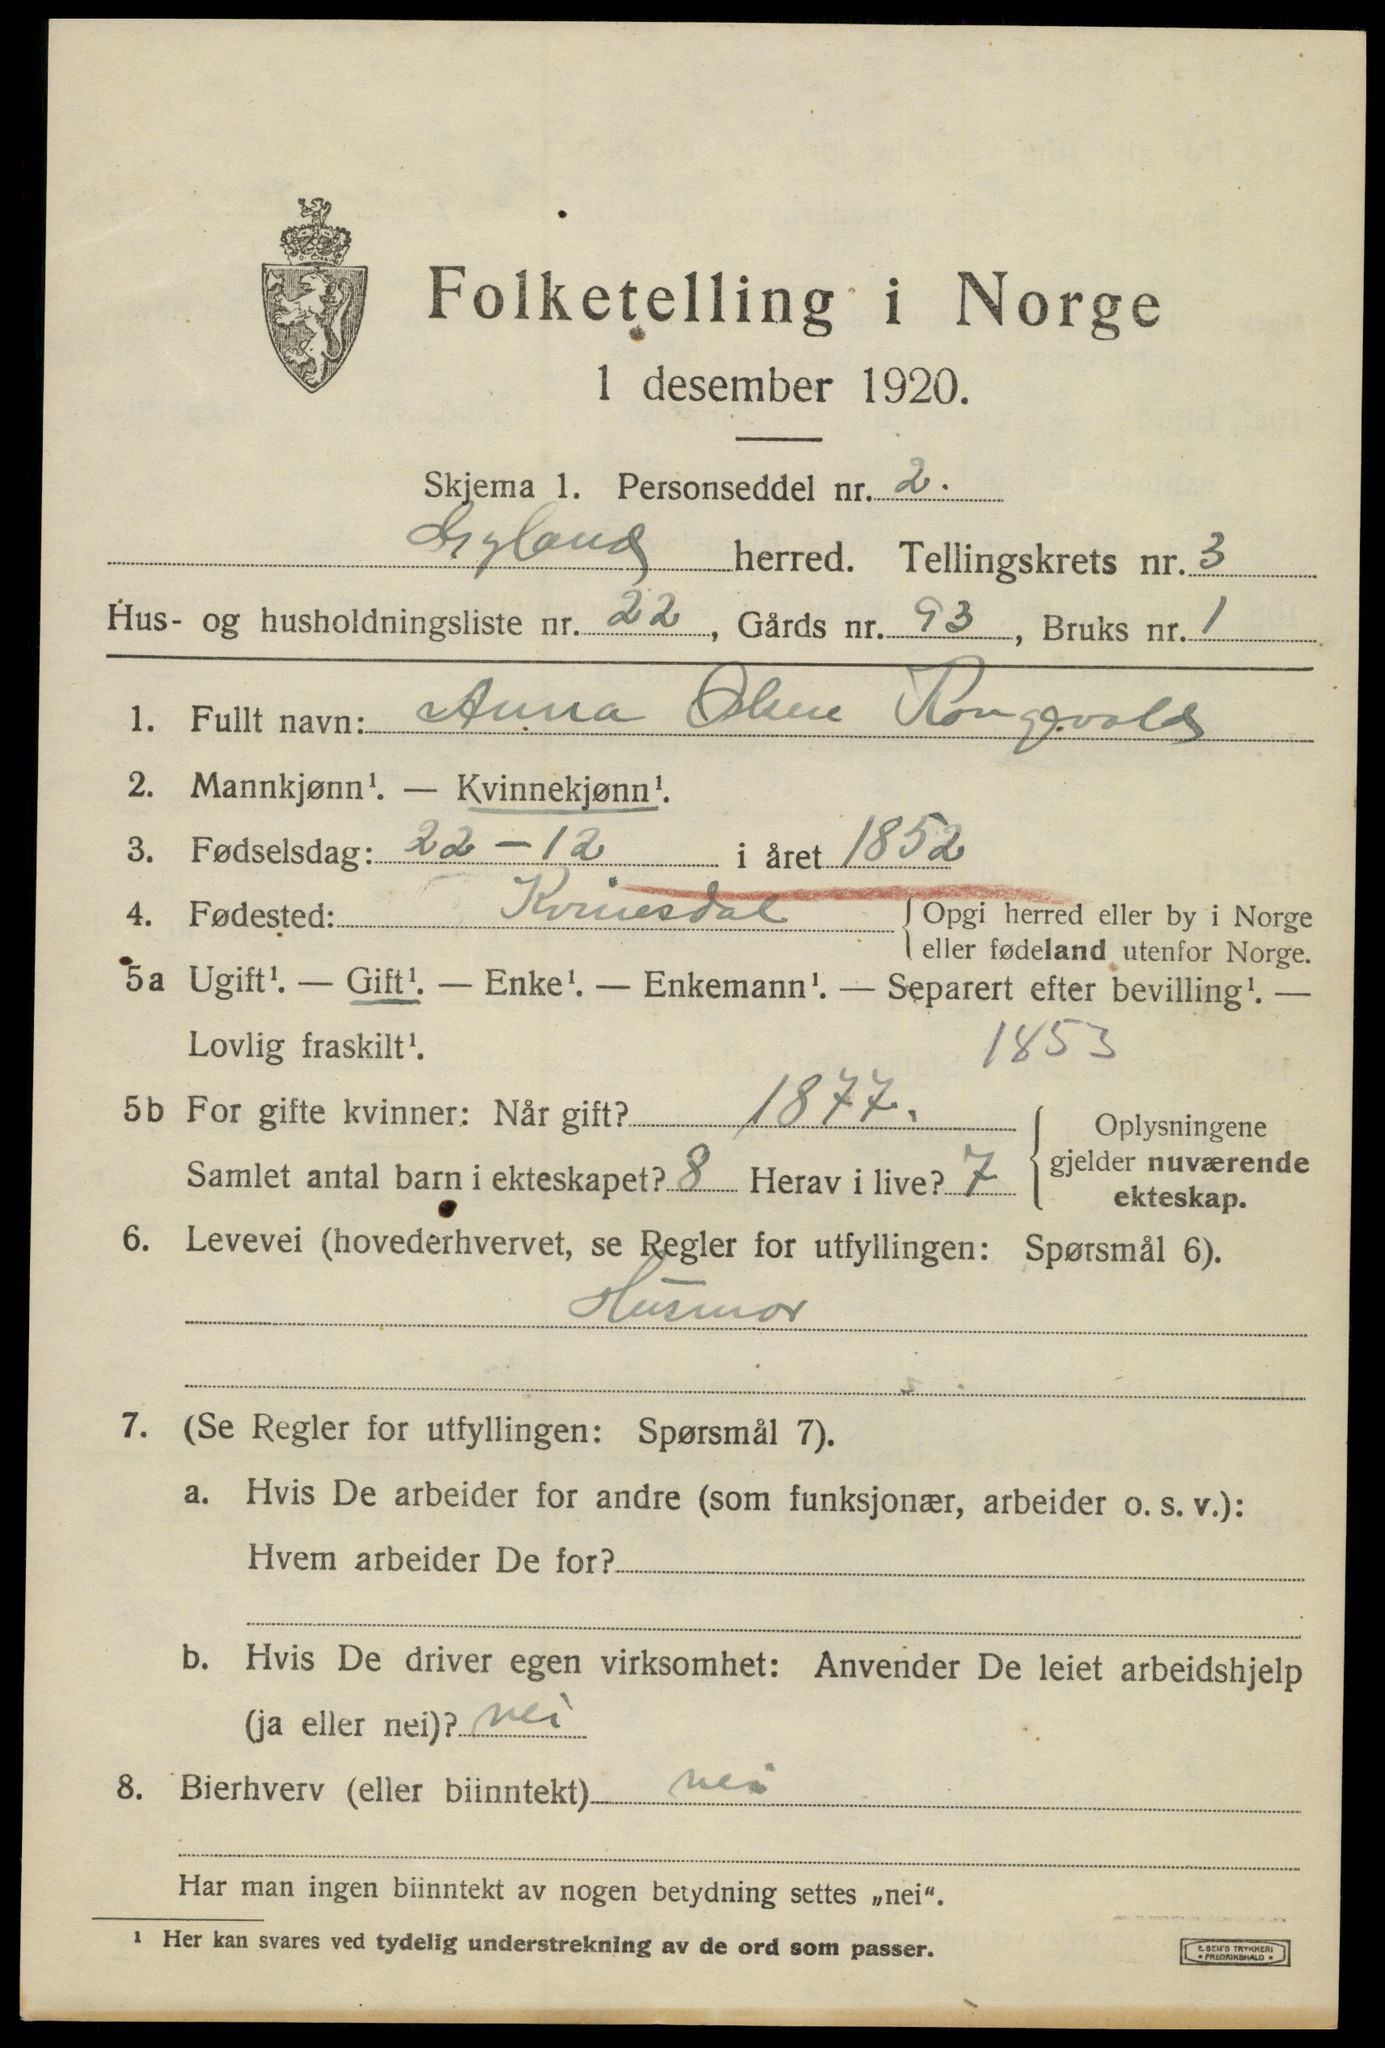 Folketelling i Norge
1 desember 1920.
Skjema 1. Personseddel nr. 2.
Gyland herred. Tellingskrets nr. 3
Hus- og husholdningsliste nr. 22, Gårds nr. 93, Bruks nr. 1
1. Fullt navn: Anna Olsen
2. Mannkjønn¹. — Kvinnekjønn¹.
3. Fødselsdag: 22-12 i året 1852
4. Fødested: Kvinesdal { Opgi herred eller by i Norge
eller fødeland utenfor Norge.
5a Ugift¹. — Gift¹. — Enke¹. — Enkemann¹. — Separert efter bevilling¹. —
Lovlig fraskilt¹. 1853
5b For gifte kvinner: Når gift? 1877. { Oplysningene
gjelder nuværende
ekteskap.
Samlet antal barn i ekteskapet? 8 Herav i live? 7
6. Levevei (hovederhvervet, se Regler for utfyllingen: Spørsmål 6).
Husmor
7. (Se Regler for utfyllingen: Spørsmål 7).
a. Hvis De arbeider for andre (som funksjonær, arbeider o. s. v.):
Hvem arbeider De for?
b. Hvis De driver egen virksomhet: Anvender De leiet arbeidshjelp
(ja eller nei)? nei
8. Bierhverv (eller biinntekt) nei
Har man ingen biinntekt av nogen betydning settes „nei“.
¹ Her kan svares ved tydelig understrekning av de ord som passer.
E. SEM'S TRYKKERI
• FREDRIKSHALD •